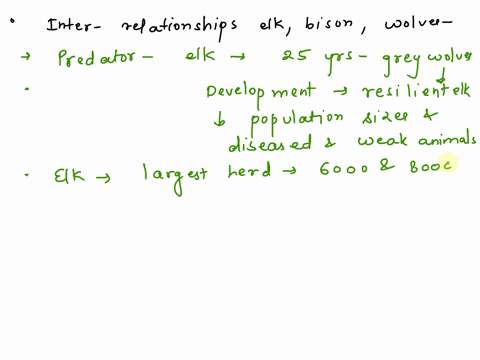 • Inter- relationships elk, bison, wolves-
→ Predator- elk → 25 yrs- grey wolves
• Development → resilient elk
↓ population sizes &
diseased & weak animals
• Elk → largest herd → 6000 & 800